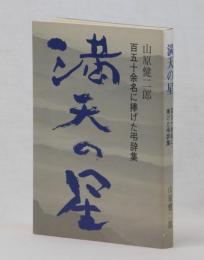 山原健二郎
百五十余名に捧げた弔辞集
満天の星
満天の星
百五十余名に
捧げた弔辞集
山原健二郎